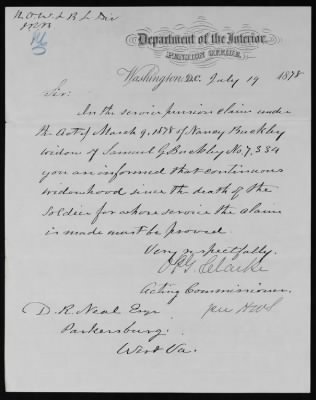 Department of the Interior,
PENSION OFFICE,
Washington, D.C. July 19 1878
Sir:
In the service pension claim under
the Act of March 9, 1878 of Nancy Buckley
widow of Samuel G. Buckley No. 7,334
you are informed that continuous
widowhood since the death of the
soldier for whose service the claim
is made must be proved.
Very respectfully.
Clarke
Acting Commissioner.
D. R. Neal Esqr
Parkersburg.
West Va.